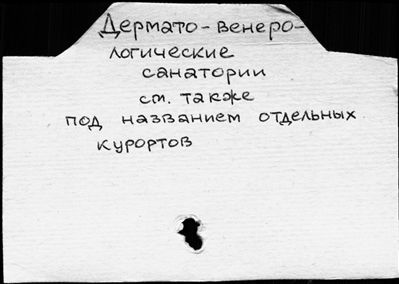 Дермато-венеро-
логические
санатории
см. также
под названием отдельных
курортов